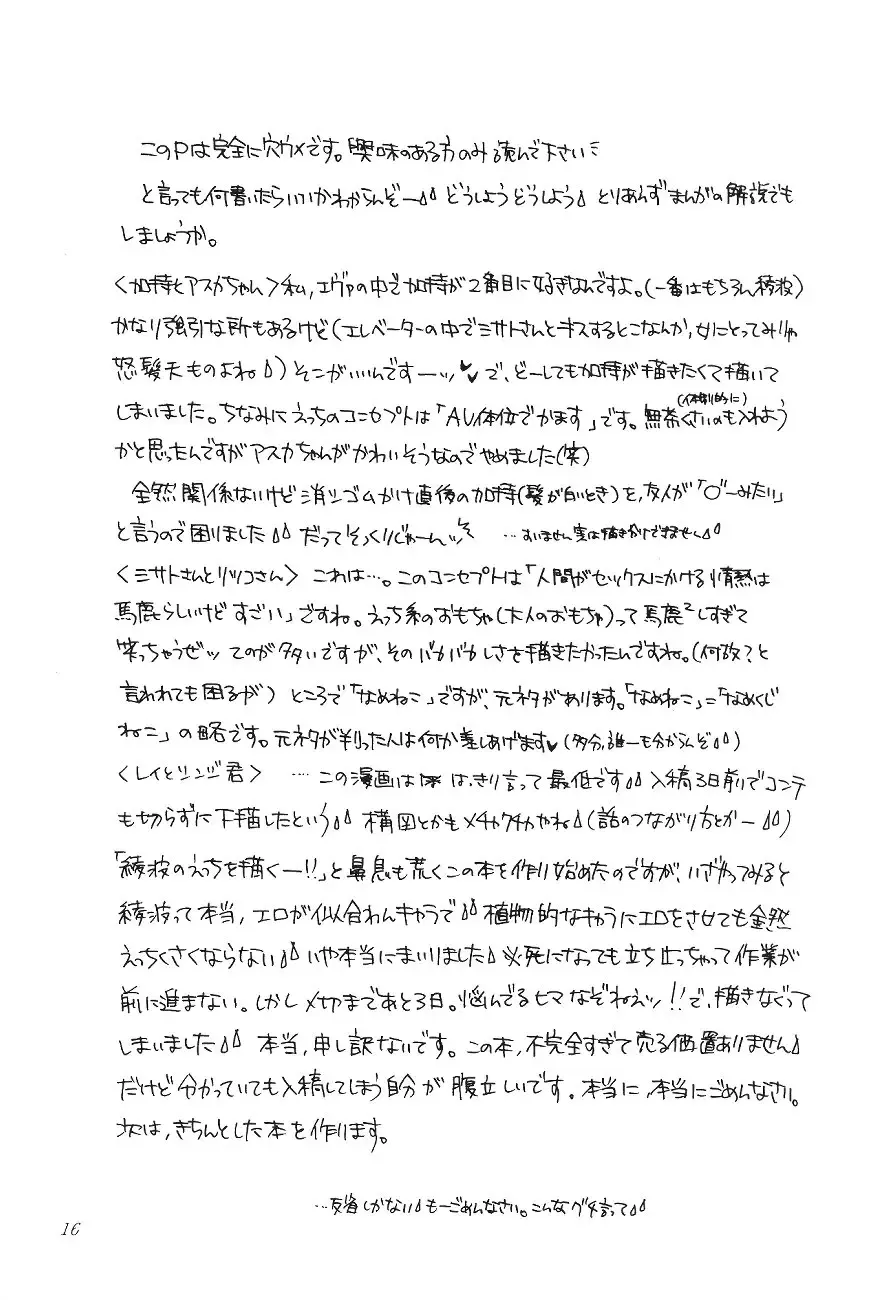 このPは完全に穴ウメです。興味のある方のみ読んで下さい
と言っても何書いたらいいかわからんぞー どうしようどうしよう とりあえずまんがの解説でも
しましょうか。
<加持とアスカちゃん>私,エヴァの中で加持が2番目に好きなんですよ。(一番はもちろん綾波)
かなり強引な所もあるけど(エレベーターの中でミサトさんとキスするとこなんか,女にとってみりゃ
怒髪天ものよね)そこがいいんですーッ♥♥で,どーしても加持が描きたくて描いて
しまいました。ちなみにえっちのコンセプトは「AV体位でかます」です。無茶(体制的に)くさいのも入れよう
かと思ったんですがアスカちゃんがかわいそうなのでやめました(笑)
全然関係ないけど消ツゴムかけ直後の加持(髪が白いとき)を,友人が「 ーみたい」
と言うので困りました だってそっくりじゃーんッ …すいません実は描き分けできません
<ミサトさんとリツコさん> これは…。このコンセプトは「人間がセックスにかける情熱は
馬鹿らしいけどすごい」ですね。えっち系のおもちゃ(大人のおもちゃ)って馬鹿²しすぎて
笑っちゃうぜッ てのが多いですが、そのバカバカしさを描きたかったんですね。(何故?と
言われても困るが) ところで「なめねこ」ですが、元ネタがあります。「なめねこ」=「なめくじ
ねこ」の略です。元ネタが判った人は何か差しあげます♥(多分,誰一も分からんぞ)
<レイとシンジ君> …この漫画は はっきり言って最低です 入稿3日前でコンテ
も切らずに下描したという 構図とかもメチャクチャやね(話のつながり方とかー)
「綾波のえっちを描くー!!」と鼻息も荒くこの本を作り始めたのですが、いざやってみると
綾波って本当,エロが似合わんキャラで 植物的なキャラにエロをさせても全然
えっちくさくならない いや本当にまいりました 必死になっても立ち止っちゃって作業が
前に進まない。しかし〆切まであと3日。悩んでるヒマなぞねえッ!!で,描きなぐって
しまいました 本当,申し訳ないです。この本,不完全すぎて売る価置ありません
だけど分かっていても入稿してしまう自分が腹立しいです。本当に,本当にごめんなさい。
次は,きちんとした本を作ります。
…反省しかない もーごめんなさい。こんなグチ言って
16